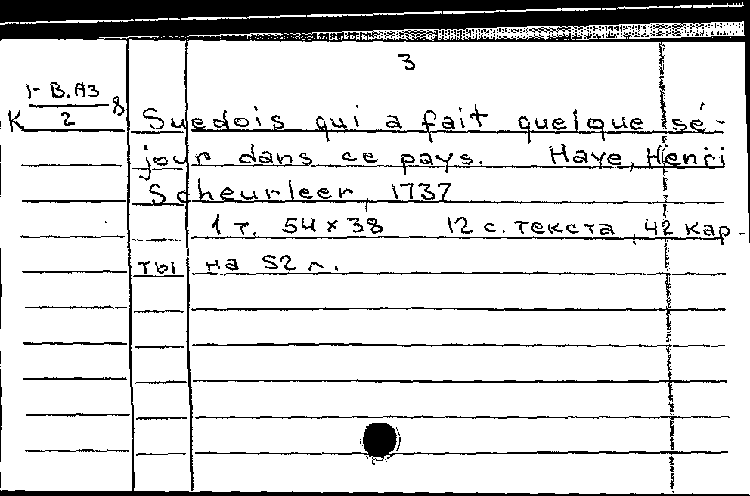 3
1-В.АЗ
К 2 8
Suedois qui a fait quelque sé-
jour dans ce pays. Haye, Henri
Scheurleer, 1737
1 т. 54 x 38 12 с. текста, 42 кар-
ты на 52 л.